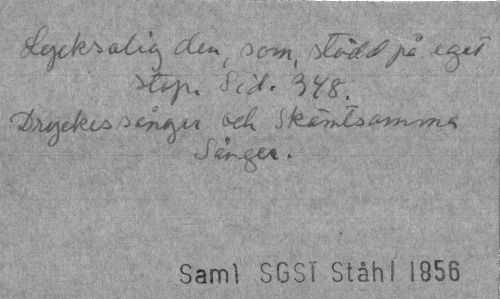 Lycksalig den, som, stödd på eget
stop. Sid. 348.
Dryckessånger och Skämtsamma
Sånger.
Saml SGSI Ståhl 1856